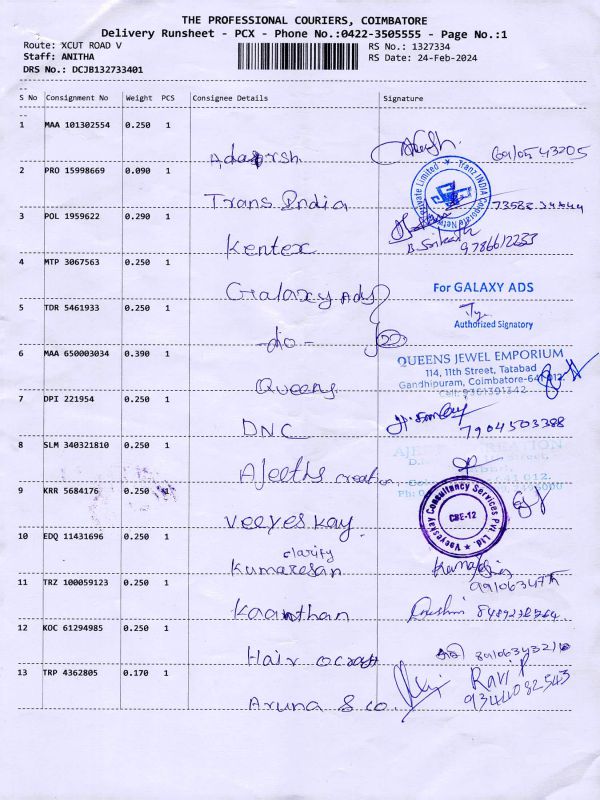 THE PROFESSIONAL COURIERS, COIMBATORE
Delivery Runsheet - PCX - Phone No.:0422-3505555 - Page No.:1
Route: XCUT ROAD V
Staff: ANITHA
DRS No.: DCJB132733401
RS No.: 1327334
RS Date: 24-Feb-2024
S No Consignment No Weight PCS Consignee Details Signature
1 MAA 101302554 0.250 1
Adarsh
2 PRO 15998669 0.090 1
Trans India
Tranz INDIA Corporate Network
Private Limited
3 POL 1959622 0.290 1
Kentex
B. Srikanth
9786612233
4 MTP 3067563 0.250 1
Galaxy Ads
For GALAXY ADS
Authorized Signatory
5 TDR 5461933 0.250 1
-do-
6 MAA 650003034 0.390 1
Queens
QUEENS JEWEL EMPORIUM
114, 11th Street, Tatabad
Gandhipuram, Coimbatore-641 012.
Cell: 9361391342
7 DPI 221954 0.250 1
DNC
7904503388
8 SLM 340321810 0.250 1
Ajeeths creation
9 KRR 5684176 0.250 1
Veeyes Kay
Vaeyeskay Consultancy Services Pvt. Ltd.
CBE-12
10 EDQ 11431696 0.250 1
clarify
Kumaresan
11 TRZ 100059123 0.250 1
Kaanthan
12 KOC 61294985 0.250 1
Hair ocraft
13 TRP 4362805 0.170 1
Aruna & co.
Ravi P
9344082543